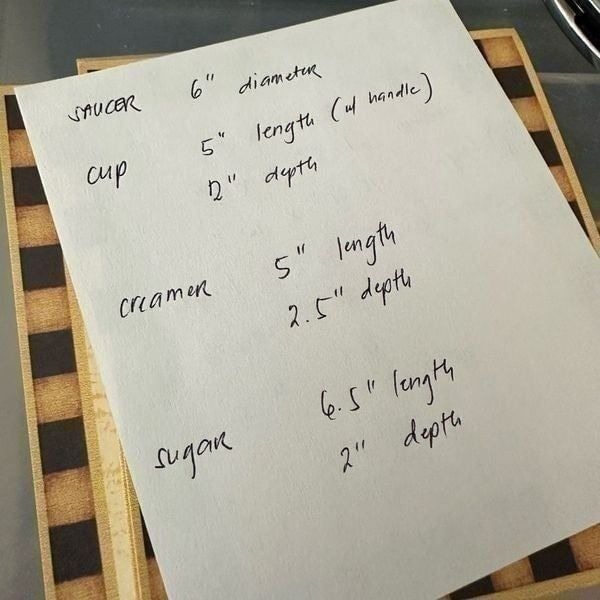 SAUCER 6" diameter
cup 5" length (w/ handle)
2" depth
creamer 5" length
2.5" depth
sugar 6.5" length
2" depth